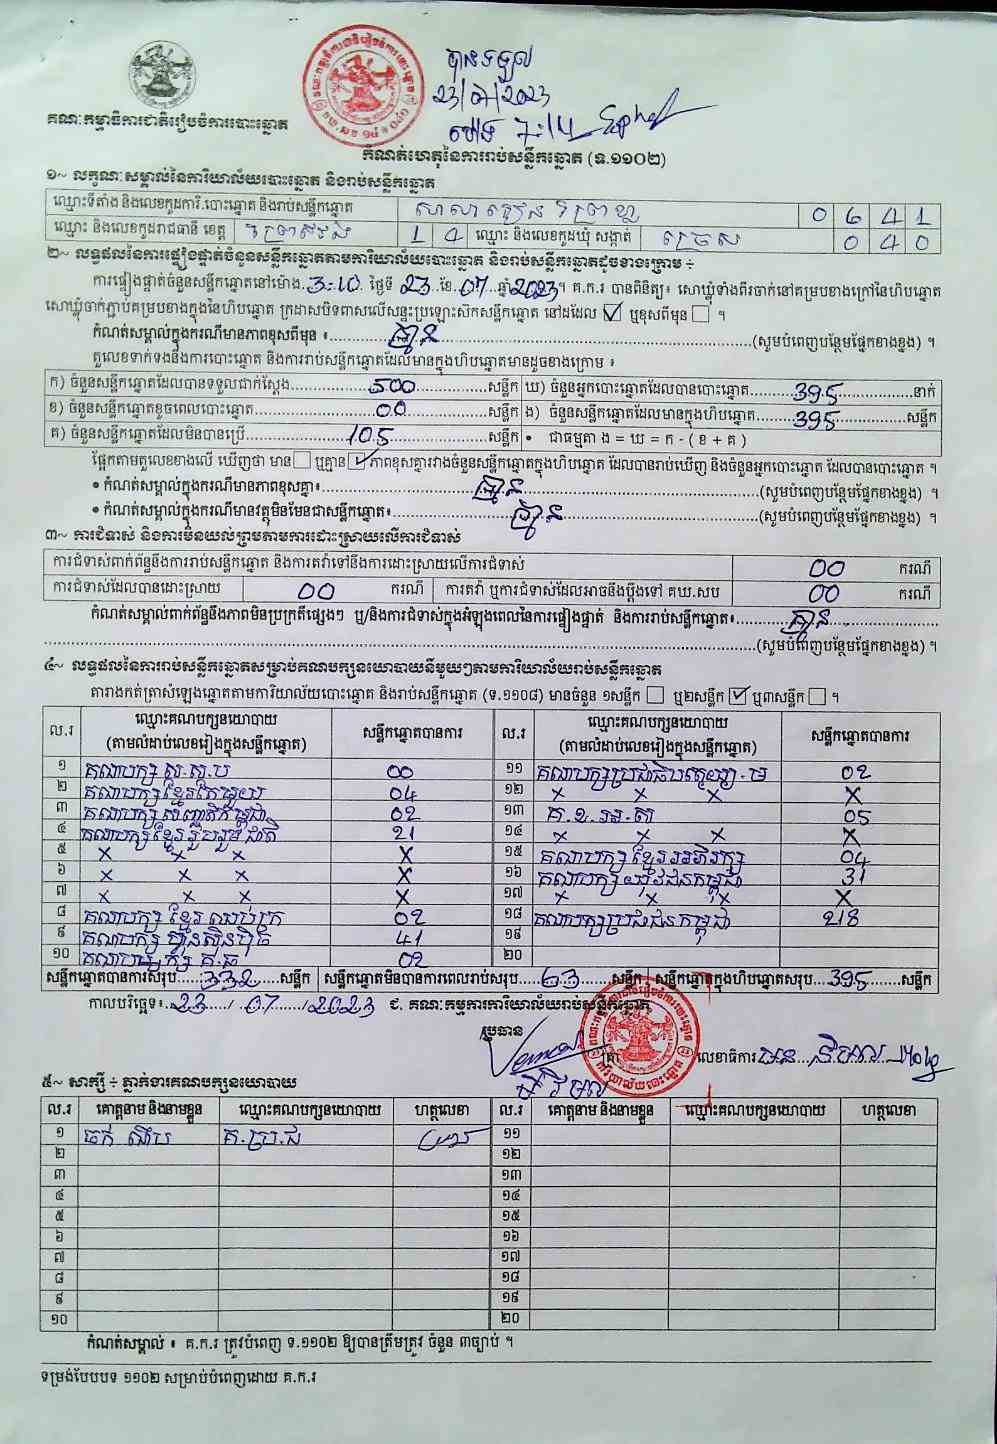 បានទទួល
23/07/2023
ម៉ោង 7:14
គណៈកម្មាធិការជាតិរៀបចំការបោះឆ្នោត
កំណត់ហេតុនៃការរាប់សន្លឹកឆ្នោត (ទ.១១០២)
១~ លក្ខណៈសម្គាល់នៃការិយាល័យបោះឆ្នោត និងរាប់សន្លឹកឆ្នោត
ឈ្មោះទីតាំង និងលេខកូដការិ.បោះឆ្នោត និងរាប់សន្លឹកឆ្នោត សាលារៀន 0 6 4 1
ឈ្មោះ និងលេខកូដរាជធានី ខេត្ត ព្រៃវែង 1 4 ឈ្មោះ និងលេខកូដឃុំ សង្កាត់ ច្រេស 0 4 0
២~ លទ្ធផលនៃការផ្ទៀងផ្ទាត់ចំនួនសន្លឹកឆ្នោតតាមការិយាល័យបោះឆ្នោត និងរាប់សន្លឹកឆ្នោតដូចខាងក្រោម ÷
ការផ្ទៀងផ្ទាត់ចំនួនសន្លឹកឆ្នោតនៅម៉ោង 3:10 ថ្ងៃទី 23 ខែ 07 ឆ្នាំ 2023។ គ.ក.រ បានពិនិត្យ៖ សោឃ្លុំទាំងពីរចាក់នៅគម្របខាងក្រៅនៃហិបឆ្នោត
សោឃ្លុំចាក់ភ្ជាប់គម្របខាងក្នុងនៃហិបឆ្នោត ក្រដាសបិទពាសលើសន្ទះប្រឡោះស៊កសន្លឹកឆ្នោត នៅដដែល ☑ ឬខុសពីមុន ☐ ។
កំណត់សម្គាល់ក្នុងករណីមានភាពខុសពីមុន ៖ គ្មាន (សូមបំពេញបន្ថែមផ្នែកខាងខ្នង) ។
តួលេខទាក់ទងនឹងការបោះឆ្នោត និងការរាប់សន្លឹកឆ្នោតដែលមានក្នុងហិបឆ្នោតមានដូចខាងក្រោម ៖
ក) ចំនួនសន្លឹកឆ្នោតដែលបានទទួលជាក់ស្តែង 500 សន្លឹក ឃ) ចំនួនអ្នកបោះឆ្នោតដែលបានបោះឆ្នោត 395 នាក់
ខ) ចំនួនសន្លឹកឆ្នោតខូចពេលបោះឆ្នោត 00 សន្លឹក ង) ចំនួនសន្លឹកឆ្នោតដែលមានក្នុងហិបឆ្នោត 395 សន្លឹក
គ) ចំនួនសន្លឹកឆ្នោតដែលមិនបានប្រើ 105 សន្លឹក • ជាធម្មតា ង = ឃ = ក - ( ខ + គ )
ផ្អែកតាមតួលេខខាងលើ ឃើញថា មាន ☐ ឬគ្មាន ☑ ភាពខុសគ្នារវាងចំនួនសន្លឹកឆ្នោតក្នុងហិបឆ្នោត ដែលបានរាប់ឃើញ និងចំនួនអ្នកបោះឆ្នោត ដែលបានបោះឆ្នោត ។
• កំណត់សម្គាល់ក្នុងករណីមានភាពខុសគ្នា៖ គ្មាន (សូមបំពេញបន្ថែមផ្នែកខាងខ្នង) ។
• កំណត់សម្គាល់ក្នុងករណីមានវត្ថុមិនមែនជាសន្លឹកឆ្នោត៖ គ្មាន (សូមបំពេញបន្ថែមផ្នែកខាងខ្នង) ។
៣~ ការជំទាស់ និងការមិនយល់ព្រមតាមការដោះស្រាយលើការជំទាស់
ការជំទាស់ពាក់ព័ន្ធនឹងការរាប់សន្លឹកឆ្នោត និងការតវ៉ាទៅនឹងការដោះស្រាយលើការជំទាស់ 00 ករណី
ការជំទាស់ដែលបានដោះស្រាយ 00 ករណី ការតវ៉ា ឬការជំទាស់ដែលអាចនឹងប្តឹងទៅ គឃ.សប 00 ករណី
កំណត់សម្គាល់ពាក់ព័ន្ធនឹងភាពមិនប្រក្រតីផ្សេងៗ ឬ/និងការជំទាស់ក្នុងអំឡុងពេលនៃការផ្ទៀងផ្ទាត់ និងការរាប់សន្លឹកឆ្នោត៖ គ្មាន
(សូមបំពេញបន្ថែមផ្នែកខាងខ្នង) ។
៤~ លទ្ធផលនៃការរាប់សន្លឹកឆ្នោតសម្រាប់គណបក្សនយោបាយនីមួយៗតាមការិយាល័យរាប់សន្លឹកឆ្នោត
តារាងកត់ត្រាសំឡេងឆ្នោតតាមការិយាល័យបោះឆ្នោត និងរាប់សន្លឹកឆ្នោត (ទ.១១០៨) មានចំនួន ១សន្លឹក ☐ ឬ២សន្លឹក ☑ ឬ៣សន្លឹក ☐ ។
ល.រ ឈ្មោះគណបក្សនយោបាយ (តាមលំដាប់លេខរៀងក្នុងសន្លឹកឆ្នោត) សន្លឹកឆ្នោតបានការ ល.រ ឈ្មោះគណបក្សនយោបាយ (តាមលំដាប់លេខរៀងក្នុងសន្លឹកឆ្នោត) សន្លឹកឆ្នោតបានការ
១ គណបក្ស ស.ស.ប 00 ១១ គណបក្សប្រជាធិបតេយ្យ.ម 02
២ គណបក្សខ្មែរតែមួយ 04 ១២ x x x X
៣ គណបក្សសញ្ជាតិកម្ពុជា 02 ១៣ គ.ខ.អ.ស 05
៤ គណបក្សខ្មែររួបរួមជាតិ 21 ១៤ x x x X
៥ x x x X ១៥ គណបក្សខ្មែរអភិរក្ស 04
៦ x x x X ១៦ គណបក្សយុវជនកម្ពុជា 31
៧ x x x X ១៧ x x x X
៨ គណបក្សខ្មែរឈប់ក្រ 02 ១៨ គណបក្សប្រជាជនកម្ពុជា 218
៩ គណបក្សហ៊្វុនស៊ិនប៉ិច 41 ១៩
១០ គណបក្ស ក.ធ 02 ២០
សន្លឹកឆ្នោតបានការសរុប 332 សន្លឹក សន្លឹកឆ្នោតមិនបានការពេលរាប់សរុប 63 សន្លឹក សន្លឹកឆ្នោតក្នុងហិបឆ្នោតសរុប 395 សន្លឹក
កាលបរិច្ឆេទ៖ 23 / 07 / 2023 ជ. គណៈកម្មការការិយាល័យរាប់សន្លឹកឆ្នោត
ប្រធាន
ត្រា លេខាធិការ
៥~ សាក្សី ÷ ភ្នាក់ងារគណបក្សនយោបាយ
ល.រ គោត្តនាម និងនាមខ្លួន ឈ្មោះគណបក្សនយោបាយ ហត្ថលេខា ល.រ គោត្តនាម និងនាមខ្លួន ឈ្មោះគណបក្សនយោបាយ ហត្ថលេខា
១ គ.ប្រ.ជ ១១
២ ១២
៣ ១៣
៤ ១៤
៥ ១៥
៦ ១៦
៧ ១៧
៨ ១៨
៩ ១៩
១០ ២០
កំណត់សម្គាល់ ៖ គ.ក.រ ត្រូវបំពេញ ទ.១១០២ ឱ្យបានត្រឹមត្រូវ ចំនួន ៣ច្បាប់ ។
ទម្រង់បែបបទ ១១០២ សម្រាប់បំពេញដោយ គ.ក.រ